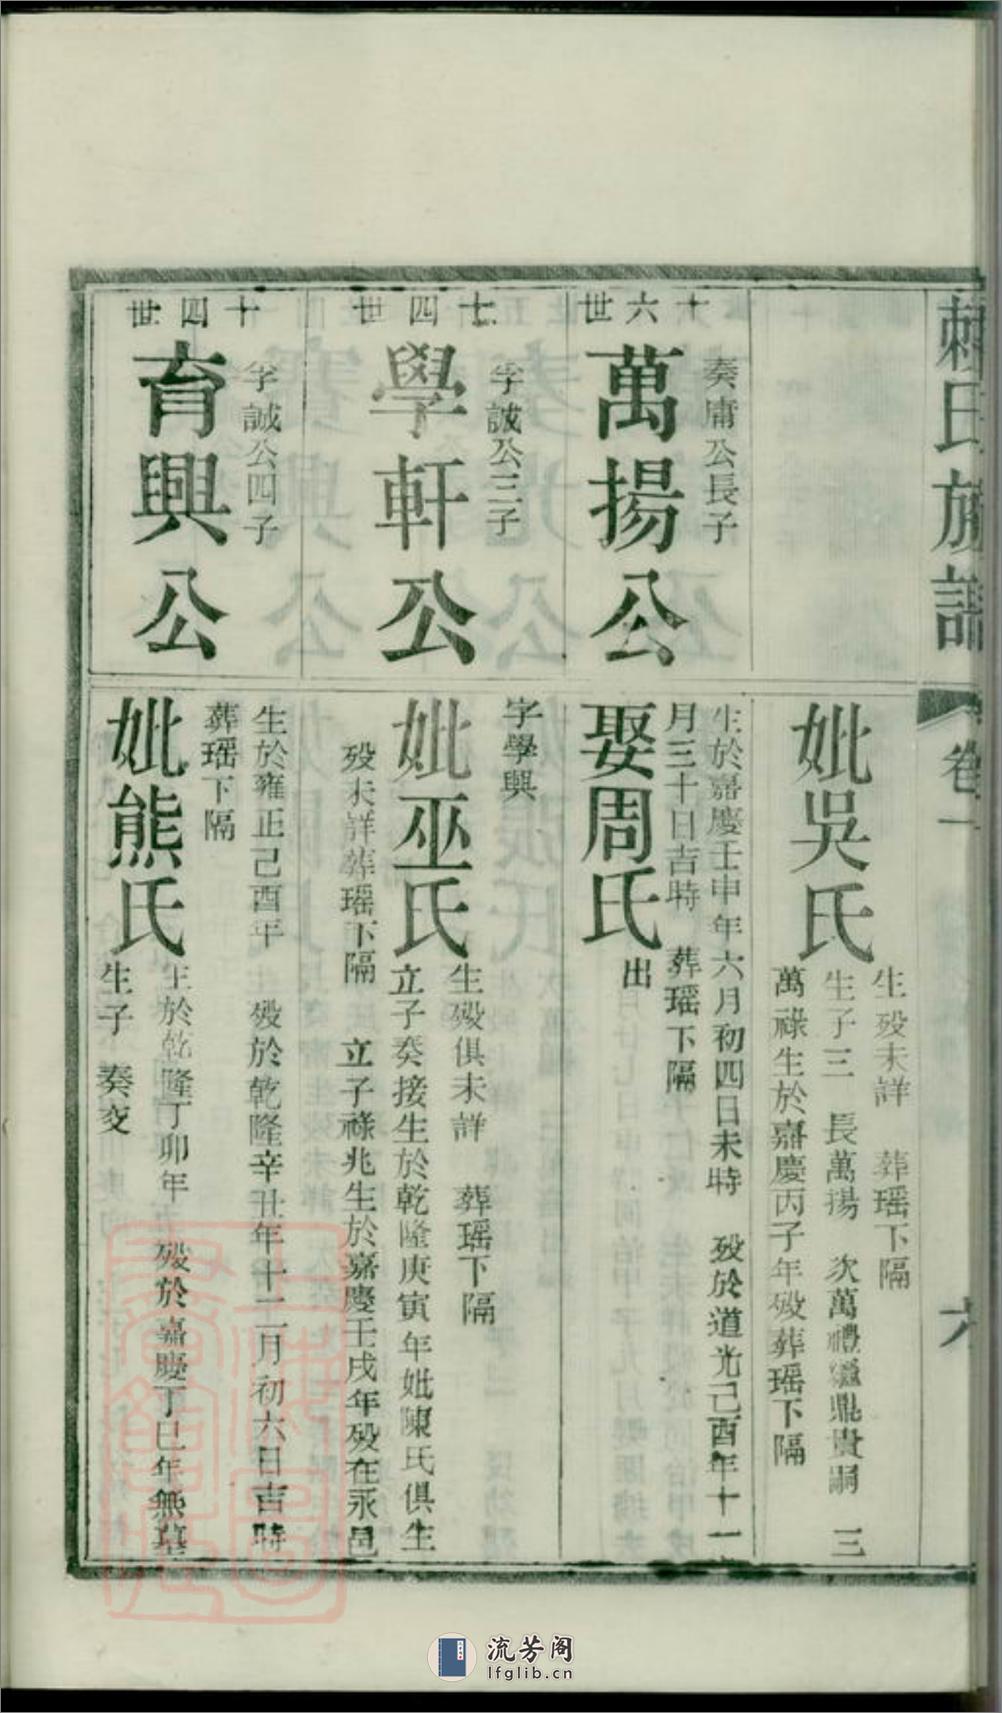 賴氏族譜
卷一
六
妣吳氏
生殁未詳 葬瑶下隔
生子三 長萬揚 次萬禮繼鼎貴嗣 三
萬祿生於嘉慶丙子年殁葬瑶下隔
十六世
奏庸公長子
萬揚公
生於嘉慶壬申年六月初四日未時 殁於道光己酉年十一
月三十日吉時 葬瑶下隔
娶周氏
出
十四世
孛誠公三子
學軒公
字學興
妣巫氏
生殁俱未詳 葬瑶下隔
立子奏接生於乾隆庚寅年妣陳氏俱生
殁未詳葬瑶下隔 立子祿兆生於嘉慶壬戌年殁在永邑
十四世
孛誠公四子
育興公
生於雍正己酉年 殁於乾隆辛丑年十二月初六日吉時
葬瑶下隔
妣熊氏
生於乾隆丁卯年 殁於嘉慶丁巳年無墓
生子 奏交
流芳阁
lfglib.cn